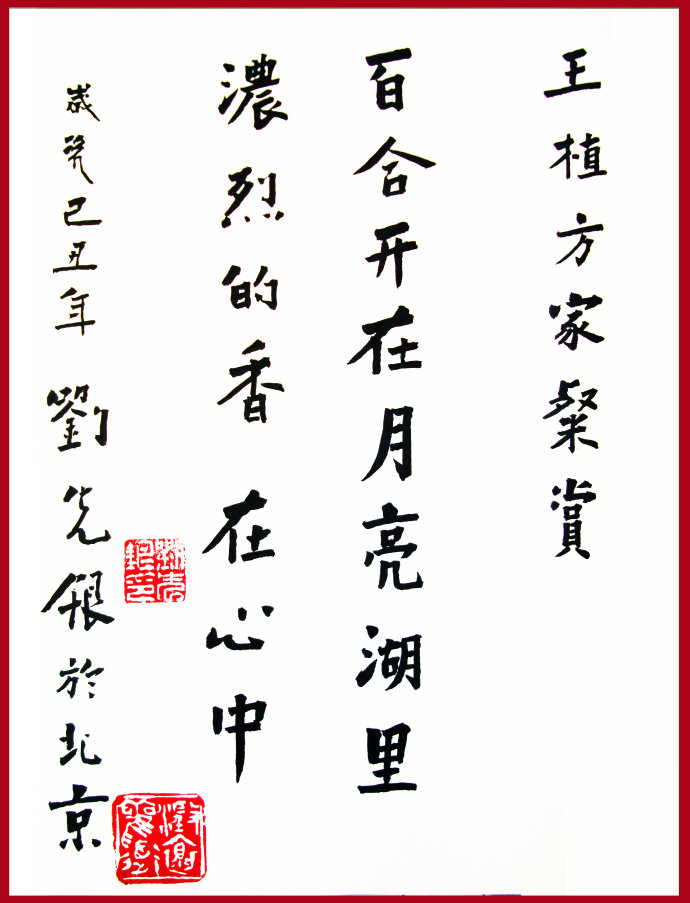 王植方家粲賞
百合开在月亮湖里
濃烈的香 在心中
歲 己丑年 劉先銀於北京
劉先銀印